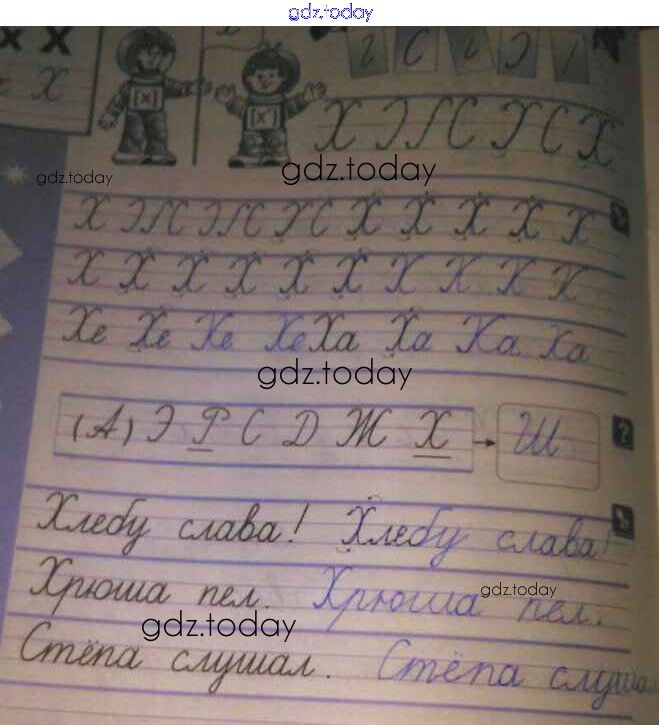 gdz.today
х Х
Х
[х] [х']
Х Х С Х С Х
gdz.today
gdz.today
Х Х Х Х Х Х
Х Х Х Х Х Х Х Х Х Х
Хе Хе Хе Хе Ха Ха Ха Ха
gdz.today
(А) Э Р С Д Ж Х → Ш
?
Хлебу слава! Хлебу слава!
Хрюша пел. Хрюша пел.
gdz.today
gdz.today
Стёпа слушал. Стёпа слушал